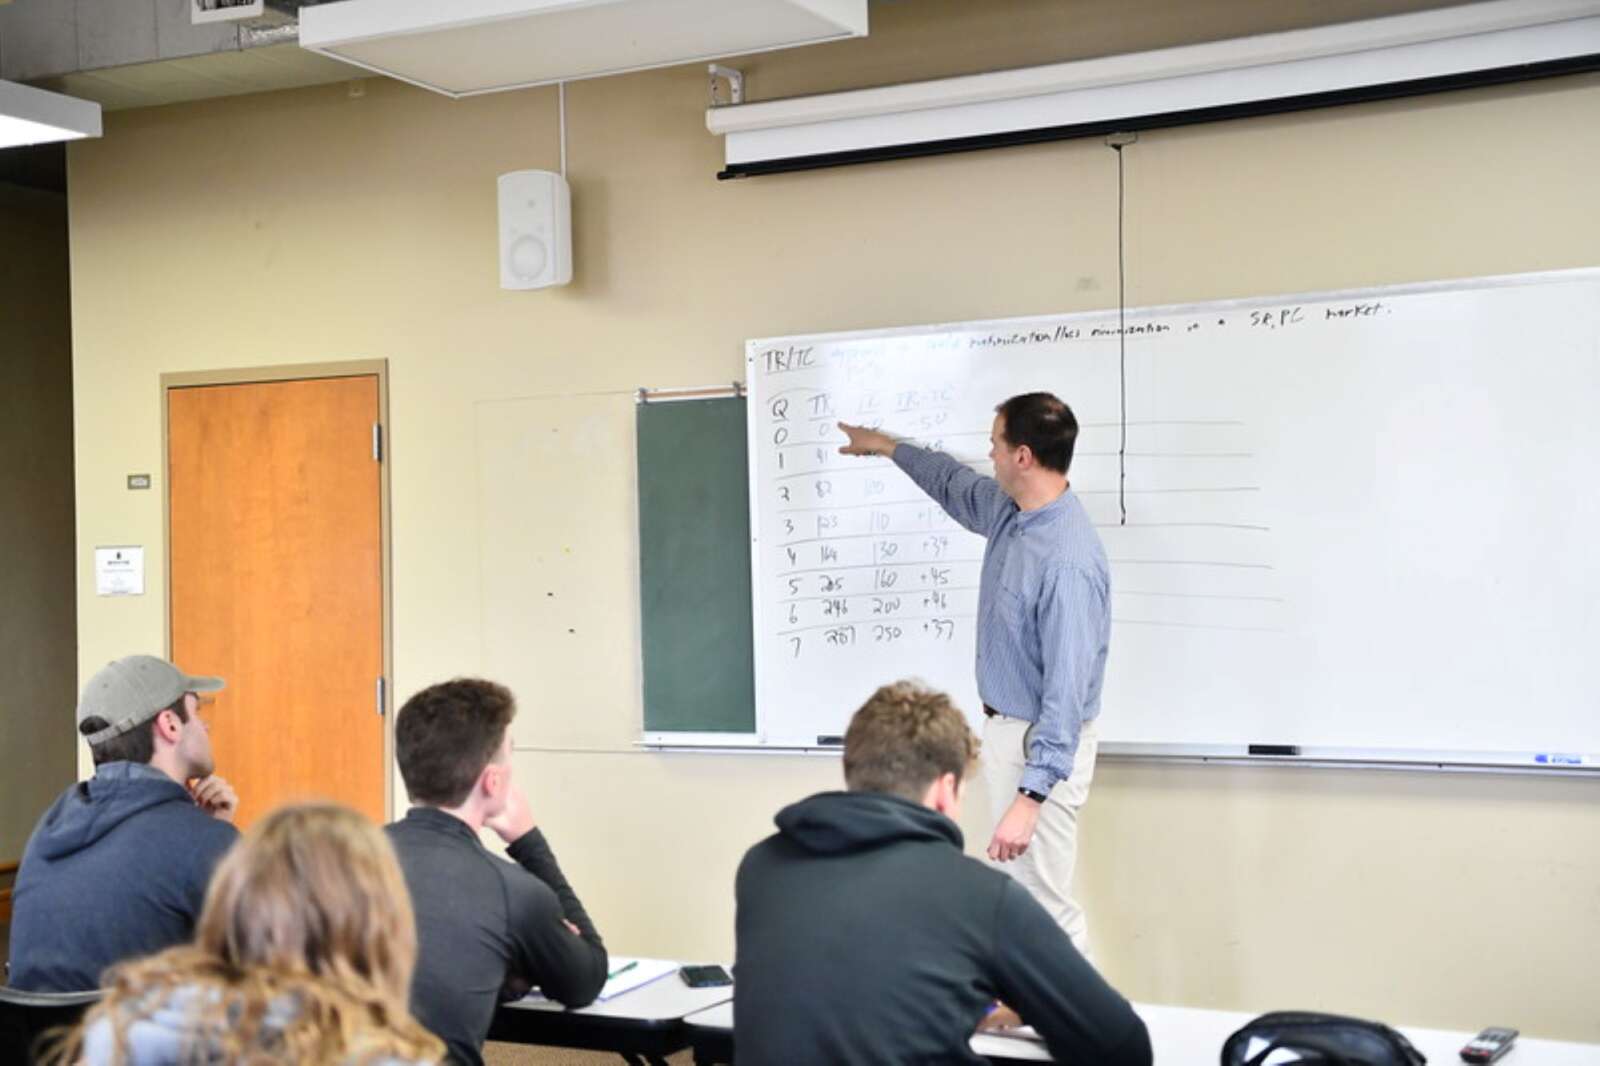 TR/TC approach → profit maximization/loss minimization in a SR, PC market.
Q TR TC TR-TC
0 0 50 -50
1 41
2 82 100
3 123 110 +13
4 164 130 +34
5 205 160 +45
6 246 200 +46
7 287 250 +37